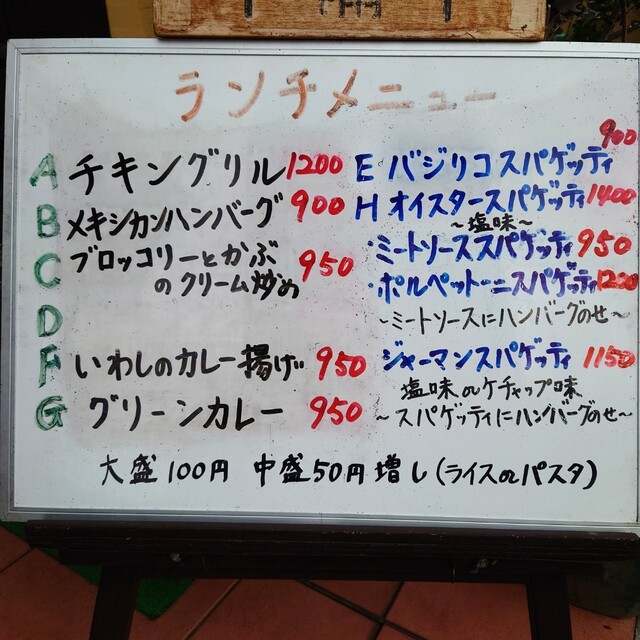 ランチメニュー
A チキングリル 1200
B メキシカンハンバーグ 900
C ブロッコリーとかぶ
のクリーム炒め 950
D
F いわしのカレー揚げ 950
G グリーンカレー 950
900
E バジリコスパゲッティ
H オイスタースパゲッティ 1400
〜塩味〜
・ミートソーススパゲッティ 950
・ポルペットーニスパゲッティ 1200
〜ミートソースにハンバーグのせ〜
ジャーマンスパゲッティ 1150
塩味orケチャップ味
〜スパゲッティにハンバーグのせ〜
大盛100円 中盛50円増し(ライスorパスタ)